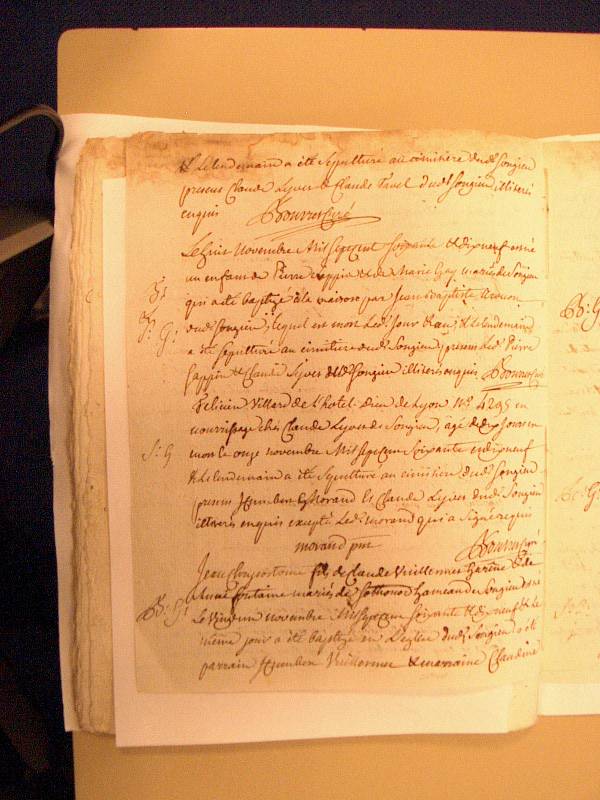 & Le lendemain a été Sepulturé au cimitière dud.t Songieu
presens Claude Lyvet & Claude Favel dud.t Songieu illiterés
enquis Bouvier Curé
Le huit novembre Mil Sept cent Soixante & dix neuf est né
un enfant de Pierre Cappin et de Marie Gay mariés de Songieu
B: S:
qui a été baptizé à la maison par Jean baptiste
S: G:
dud.t Songieu, lequel est mort led.t Jour & an, & le lendemain
a été Sepulturé au cimitière dud.t Songieu presens led.t Pierre
Cappin & Claude Lyvet dud.t Songieu illiterés enquis Bouvier Curé
Felicien Villard de l'hotel-dieu de Lyon N.o 4295 en
nourrissage chés Claude Lyvet de Songieu, agé de dix Jours est
S: G
mort le onze novembre Mil Sept cent Soixante et dix neuf
& Le lendemain a été Sepulturé au cimitière dud.t Songieu
presens Humbert Morand et Claude Lyvet dud.t Songieu
illiterés enquis excepté Led.t morand qui a Signé requis
morand pnt Bouvier Curé
Jean Chrysostome fils de Claude Vuillermet &
Anne fontaine mariés de Sothonod hameau de Songieu est né
B: S:
Le Vingt un novembre Mil Sept cent Soixante & dix neuf & le
même jour a été baptizé en L'eglise dud.t Songieu a été
parrain Humbert Vuillermet & marraine Claudine